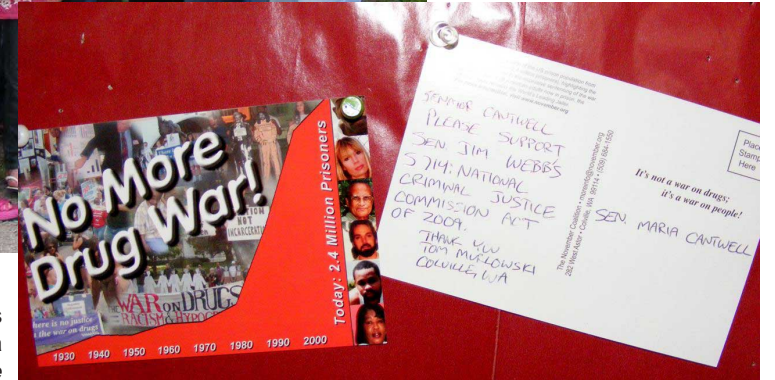 No More
Drug War!
Today: 2.4 Million Prisoners
NOT
INCARCERATE
WAR ON DRUGS
there is no justice
the war on drugs
1930 1940 1950 1960 1970 1980 1990 2000
SENATOR CANTWELL
PLEASE SUPPORT
SEN. JIM WEBB'S
S 714: NATIONAL
CRIMINAL JUSTICE
COMMISSION ACT
OF 2009.
THANK YOU
TOM MURLOWSKI
COLVILLE, WA
The November Coalition • moreinfo@november.org
282 West Astor • Colville, WA 99114 • (509) 684-1550
Place
Stamp
Here
It's not a war on drugs;
it's a war on people!
SEN. MARIA CANTWELL